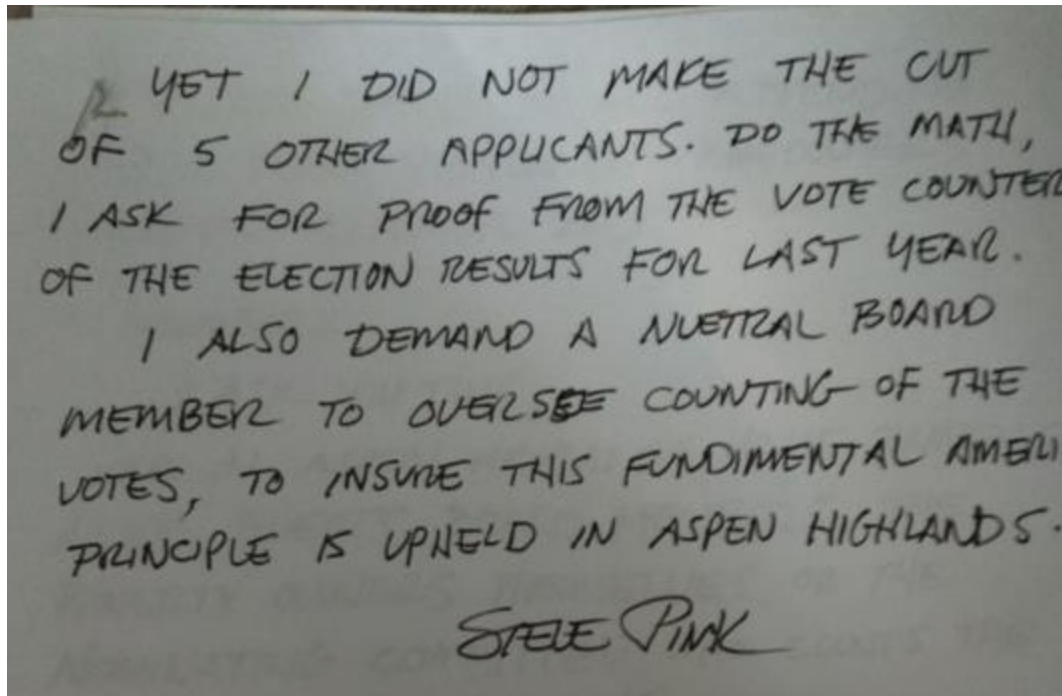 YET I DID NOT MAKE THE CUT
OF 5 OTHER APPLICANTS. DO THE MATH,
I ASK FOR PROOF FROM THE VOTE COUNTER
OF THE ELECTION RESULTS FOR LAST YEAR.
I ALSO DEMAND A NUETRAL BOARD
MEMBER TO OVERSEE COUNTING OF THE
VOTES, TO INSURE THIS FUNDIMENTAL AMERI
PRINCIPLE IS UPHELD IN ASPEN HIGHLANDS.
STELE PINK